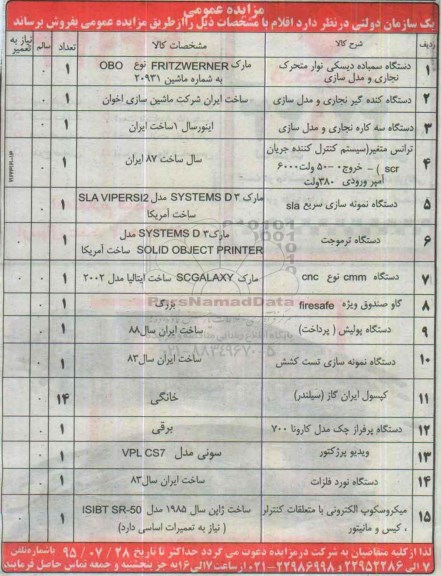 مزایده عمومی
یک سازمان دولتی درنظر دارد اقلام با مشخصات ذیل را ازطریق مزایده عمومی بفروش برساند
ردیف شرح کالا مشخصات کالا تعداد سالم نیاز به تعمیر
۱ دستگاه سمباده دیسکی نوار متحرک نجاری و مدل سازی مارک FRITZWERNER نوع OBO به شماره ماشین ۲۰۹۳۱ ۱ ۰
۲ دستگاه کنده گیر نجاری و مدل سازی ساخت ایران شرکت ماشین سازی اخوان ۱ ۰
۳ دستگاه سه کاره نجاری و مدل سازی اینورسال ۱ساخت ایران ۱ ۰
۴ ترانس متغیر(سیستم کنترل کننده جریان scr ) – خروج۰ -۵۰ ولت۶۰۰۰ آمپر ورودی ۳۸۰ولت سال ساخت ۸۷ ایران ۱ ۰
۵ دستگاه نمونه سازی سریع sla مارک ۳ SYSTEMS D مدل SLA VIPERSI2 ساخت آمریکا ۱ ۰
۶ دستگاه ترموجت مارک۳ SYSTEMS D مدل SOLID OBJECT PRINTER ساخت آمریکا ۱ ۰
۷ دستگاه cmm نوع cnc مارک SCGALAXY ساخت ایتالیا مدل ۲۰۰۲ ۱ ۰
۸ گاو صندوق ویژه firesafe بزرگ ۱ ۰
۹ دستگاه پولیش ( پرداخت) ساخت ایران سال۸۸ ۱ ۰
۱۰ دستگاه نمونه سازی تست کشش ساخت ایران سال۸۳ ۱ ۰
۱۱ کپسول ایران گاز (سیلندر) خانگی ۱۴ ۰
۱۲ دستگاه پرفراژ چک مدل کارونا ۷۰۰ برقی ۱ ۰
۱۳ ویدیو پرژکتور سونی مدل VPL CS7 ۱ ۰
۱۴ دستگاه نورد فلزات ساخت ایران سال۸۳ ۱ ۰
۱۵ میکروسکوپ الکترونی با متعلقات کنترلر ، کیس و مانیتور ساخت ژاپن سال ۱۹۸۵ مدل ISIBT SR-50 ( نیاز به تعمیرات اساسی دارد) ۱ ۰
لذا از کلیه متقاضیان به شرکت درمزایده دعوت می گردد حداکثر تا تاریخ ۹۵/۰۷/۲۸ باشماره تلفن
۲۲۹۵۲۲۸۶ و ۲۲۹۸۶۹۹۸-۰۲۱ ازساعت ۱۷الی۱۶به جز پنجشنبه و جمعه تماس حاصل فرمایند
ParsNamadData
۰۲۱-۸۸۳۴۹۶۷۰-۵